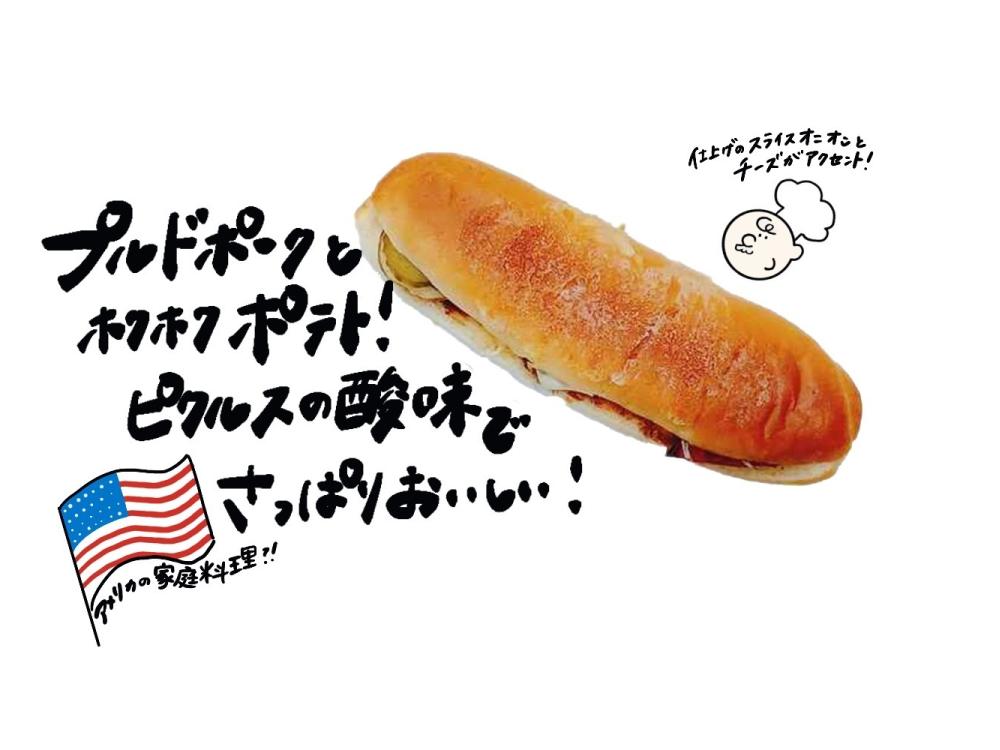 プルドポークと
ホクホクポテト!
ピクルスの酸味で
さっぱりおいしい!
アメリカの家庭料理?!
仕上げのスライスオニオンと
チーズがアクセント!